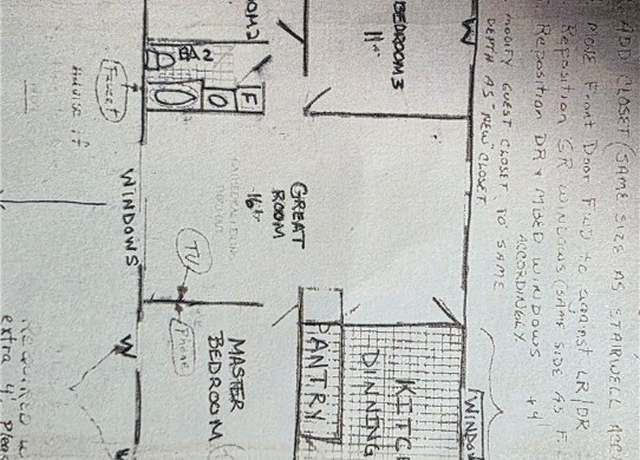 ADD CLOSET (SAME SIZE AS STAIRWELL
MOVE Front Door FWD to against LR/DR
Reposition GR WINDOWS (SAME SIDE AS F.
Reposition DR & MBED WINDOWS +4'
ACCORDINGLY
MODIFY GUEST CLOSET TO SAME
DEPTH AS "NEW CLOSET"
W
BEDROOM 3
11'
OOM 2
BA 2
F
O
Faucet
WINDOWS
GREAT
ROOM
16'
TV
Phone
MASTER
BEDROOM
PANTRY
KITC
DINNING
WINDOW
W
W
REQUIRED
extra 4'